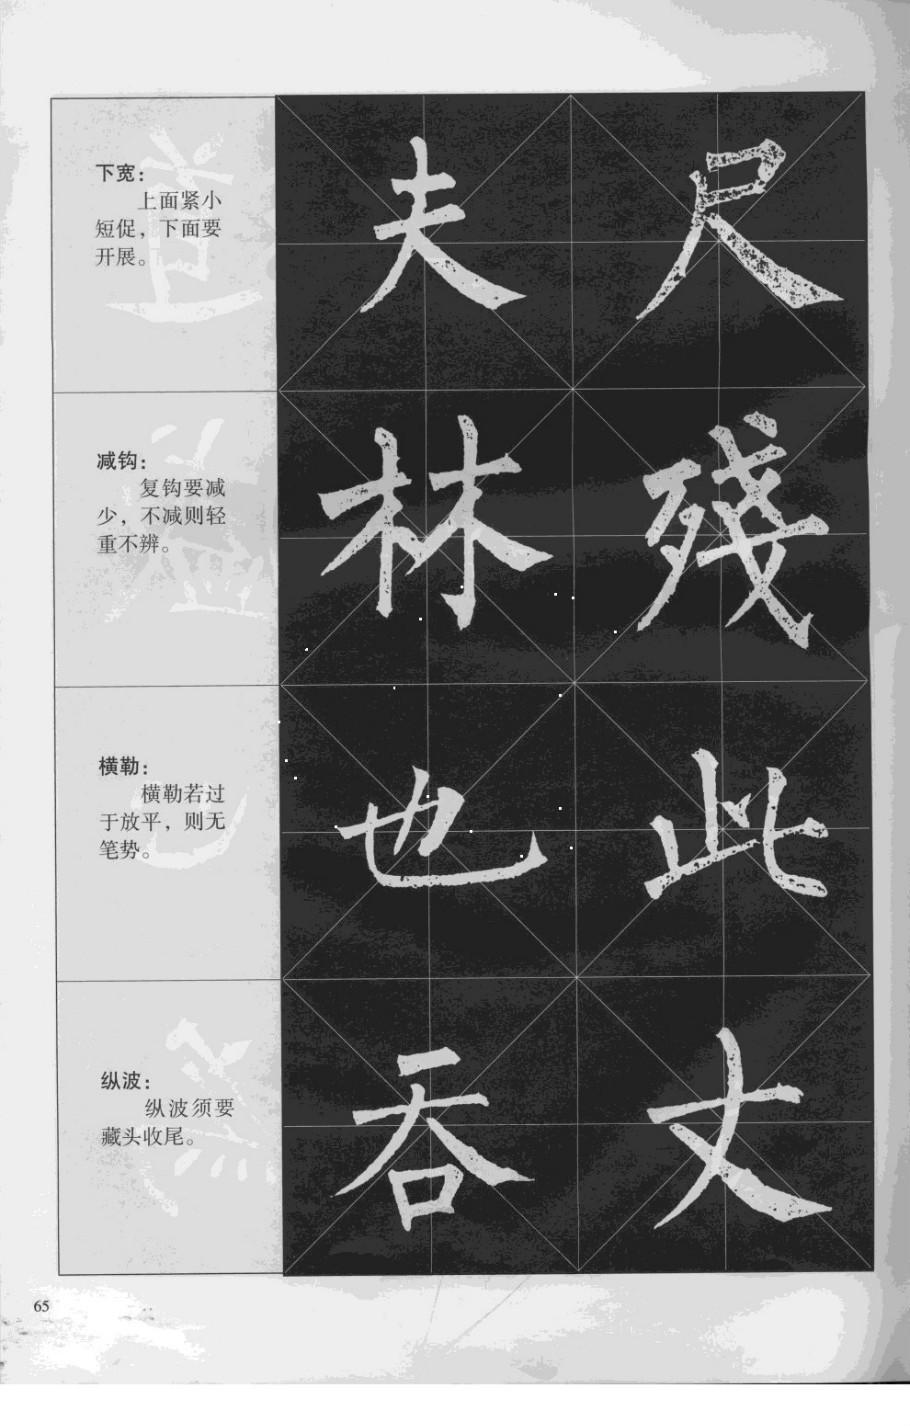 下宽：
上面紧小
短促，下面要
开展。
夫 尺
减钩：
复钩要减
少，不减则轻
重不辨。
林 殘
横勒：
横勒若过
于放平，则无
笔势。
也 此
纵波：
纵波须要
藏头收尾。
吞 丈
65